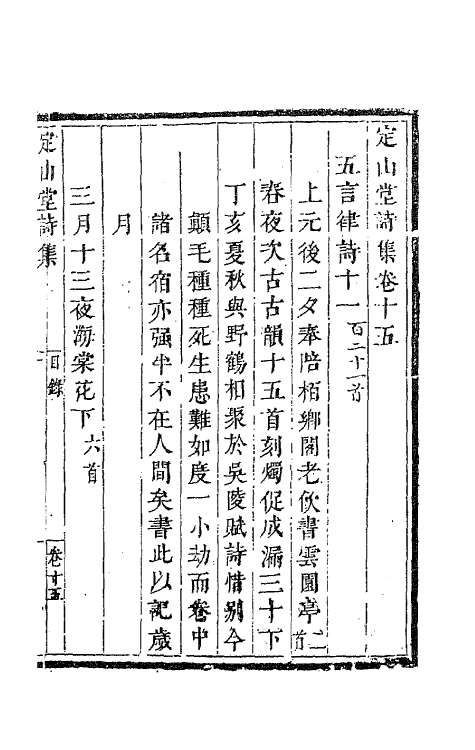 定山堂詩集卷十五
五言律詩十一百二十一首
上元後二夕奉陪栢鄉閣老飲書雲園亭二首
春夜次古古韻十五首刻燭促成漏三十下
丁亥夏秋與野鶴相聚於吳陵賦詩惜別今
顛毛種種死生患難如度一小劫而卷中
諸名宿亦强半不在人間矣書此以記歲
月
三月十三夜海棠花下六首
定山堂詩集 目錄 卷十五